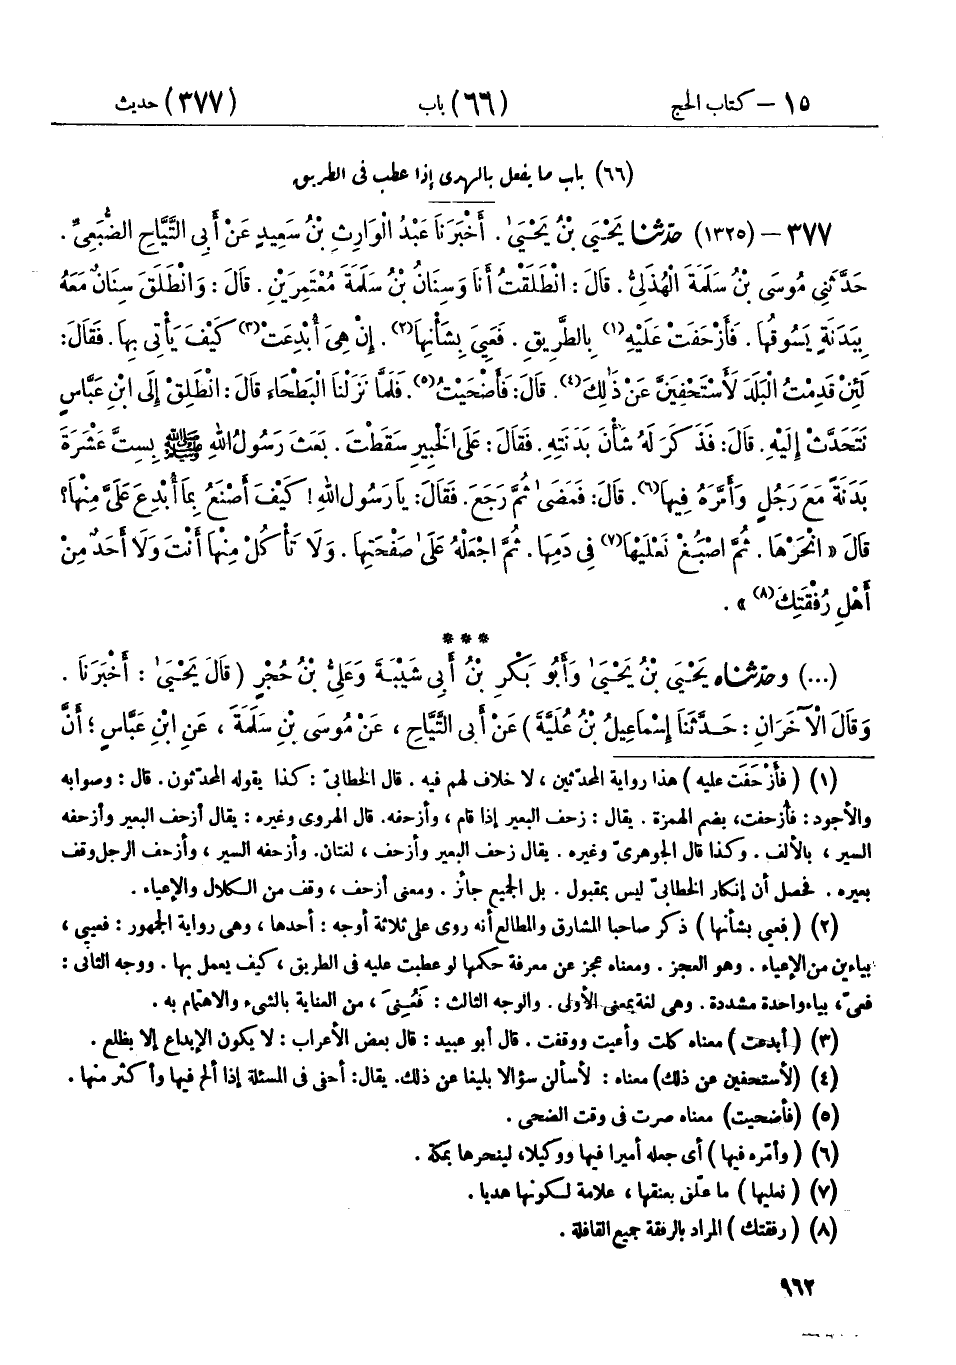 ١٥ – كتاب الحج (٦٦) باب (٣٧٧) حديث
(٦٦) باب ما يفعل بالهدى إذا عطب فى الطريق
٣٧٧ – (١٣٢٥) حَدَّثَنَا يَحْيَىٰ بْنُ يَحْيَىٰ. أَخْبَرَنَا عَبْدُ الْوَارِثِ بْنُ سَعِيدٍ عَنْ أَبِى التَّيَّاحِ الضُّبَعِىِّ.
حَدَّثَنِى مُوسَى بْنُ سَلَمَةَ الْهُذَلِىُّ. قَالَ: انْطَلَقْتُ أَنَا وَسِنَانُ بْنُ سَلَمَةَ مُعْتَمِرَيْنِ. قَالَ: وَانْطَلَقَ سِنَانٌ مَعَهُ
بِبَدَنَةٍ يَسُوقُهَا. فَأَزْحَفَتْ عَلَيْهِ(١) بِالطَّرِيقِ. فَعَيِىَ بِشَأْنِهَا(٢). إِنْ هِىَ أُبْدِعَتْ(٣) كَيْفَ يَأْتِى بِهَا. فَقَالَ:
لَئِنْ قَدِمْتُ الْبَلَدَ لَأَسْتَحْفِيَنَّ عَنْ ذَٰلِكَ(٤). قَالَ: فَأَضْحَيْتُ(٥). فَلَمَّا نَزَلْنَا الْبَطْحَاء قَالَ: انْطَلِقْ إِلَى ابْنِ عَبَّاسٍ
نَتَحَدَّثْ إِلَيْهِ. قَالَ: فَذَكَرَ لَهُ شَأْنَ بَدَنَتِهِ. فَقَالَ: عَلَى الْخَبِيرِ سَقَطْتَ. بَعَثَ رَسُولُ اللهِ ﷺ بِسِتَّ عَشْرَةَ
بَدَنَةً مَعَ رَجُلٍ وَأَمَّرَهُ فِيهَا(٦). قَالَ: فَمَضَىٰ ثُمَّ رَجَعَ. فَقَالَ: يَا رَسُولَ اللهِ! كَيْفَ أَصْنَعُ بِمَا أُبْدِعَ عَلَىَّ مِنْهَا؟
قَالَ « انْحَرْهَا. ثُمَّ اصْبُغْ نَعْلَيْهَا(٧) فِى دَمِهَا. ثُمَّ اجْعَلْهُ عَلَىٰ صَفْحَتِهَا. وَلَا تَأْكُلْ مِنْهَا أَنْتَ وَلَا أَحَدٌ مِنْ
أَهْلِ رُفْقَتِكَ(٨) ».
***
(...) وحَدَّثَنَاه يَحْيَىٰ بْنُ يَحْيَىٰ وَأَبُو بَكْرِ بْنُ أَبِى شَيْبَةَ وَعَلِىُّ بْنُ حُجْرٍ (قَالَ يَحْيَىٰ: أَخْبَرَنَا.
وَقَالَ الْآخَرَانِ: حَدَّثَنَا إِسْمَاعِيلُ بْنُ عُلَيَّةَ) عَنْ أَبِى التَّيَّاحِ، عَنْ مُوسَى بْنِ سَلَمَةَ، عَنِ ابْنِ عَبَّاسٍ؛ أَنَّ
(١) (فأزْحَفَت عليه) هذا رواية المحدّثين، لا خلاف لهم فيه. قال الخطابىّ: كذا يقوله المحدّثون. قال: وصوابه
والأجود: فأُزحفت، بضم الهمزة. يقال: زحف البعير إذا قام، وأزحفه. قال الهروى وغيره: يقال أزحف البعير وأزحفه
السير، بالألف. وكذا قال الجوهرىّ وغيره. يقال زحف البعير وأزحف، لغتان. وأزحفه السير، وأزحف الرجل وقف
بعيره. فحصل أن إنكار الخطابىّ ليس بمقبول. بل الجميع جائز. ومعنى أزحف، وقف من الكلال والإعياء.
(٢) (فعيي بشأنها) ذكر صاحبا المشارق والمطالع أنه روى على ثلاثة أوجه: أحدها، وهى رواية الجمهور: فعيي،
بياءين من الإعياء. وهو العجز. ومعناه عجز عن معرفة حكمها لو عطبت عليه فى الطريق، كيف يعمل بها. ووجه الثانى:
فعىّ، بياء واحدة مشددة. وهى لغة بمعنى الأولى. والوجه الثالث: فَعُنِىَ، من العناية بالشىء والاهتمام به.
(٣) (أبدعت) معناه كلت وأعيت ووقفت. قال أبو عبيد: قال بعض الأعراب: لا يكون الإبداع إلا بظلع.
(٤) (لأستحفين عن ذلك) معناه: لأسألن سؤالا بليغا عن ذلك. يقال: أحفى فى المسئلة إذا ألح فيها وأكثر منها.
(٥) (فأضحيت) معناه صرت فى وقت الضحى.
(٦) (وأمّره فيها) أى جعله أميرا فيها ووكيلا، لينحرها بمكة.
(٧) (نعليها) ما علّق بعنقها، علامة لكونها هديا.
(٨) (رفقتك) المراد بالرفقة جميع القافلة.
٩٦٢